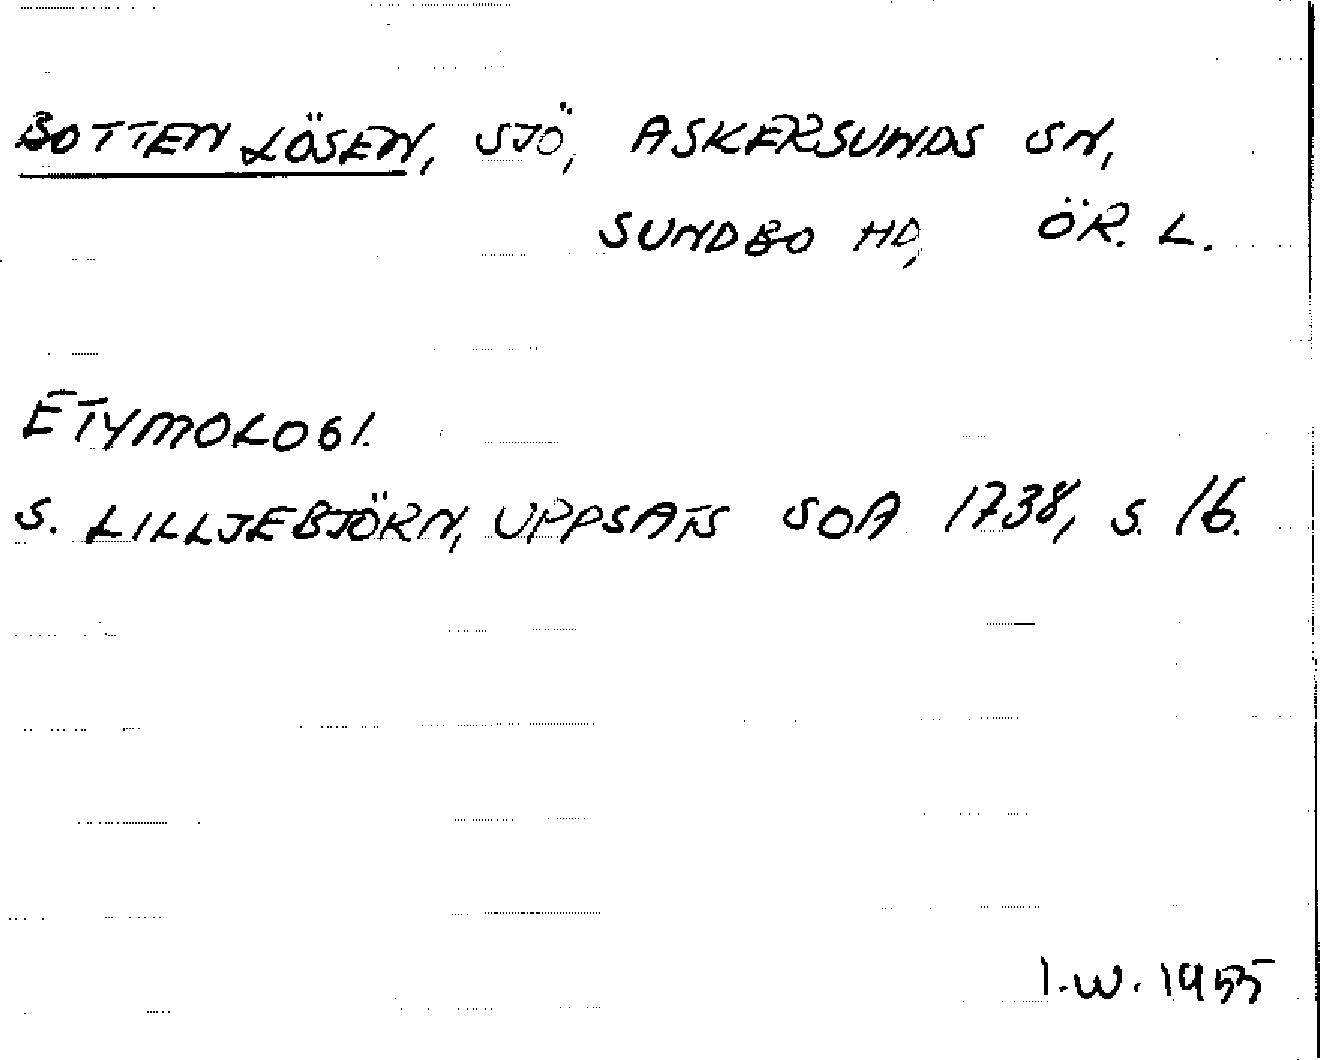 BOTTENLÖSEN, SJÖ, ASKERSUNDS SN,
SUNDBO HD, ÖR. L.
ETYMOLOGI.
S. LILLJEBJÖRN, UPPSATS SOA 1738, S. 16.
I.W. 1955